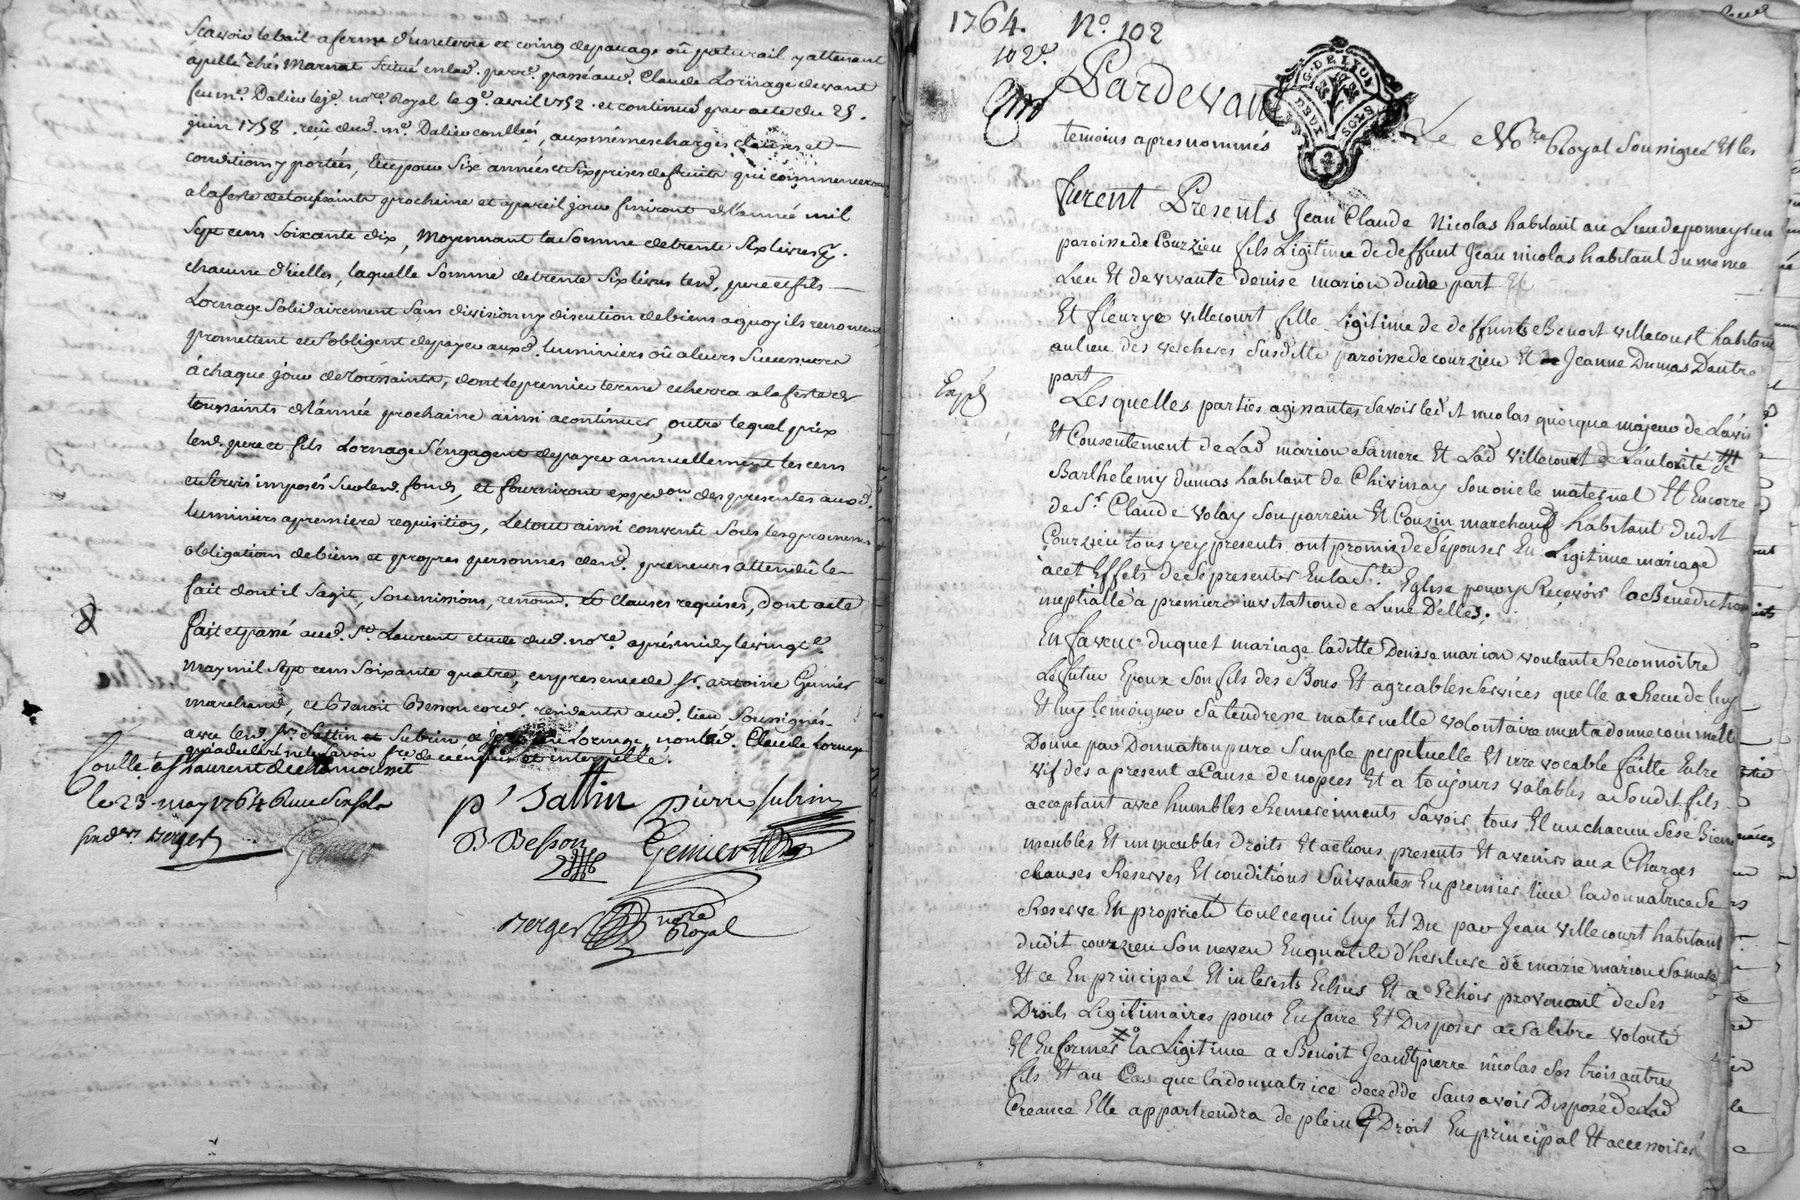 Scavoir le bail a ferme d'une terre et coing de pacage où paturail y attenant
appellé chés Marnat scitué en lad. parr. passé aud. Claude Lornage devant
feu me. Dalieu le je. nore. Royal le 9e. avril 1752. et continué par acte du 25.
juin 1758. reçu dud. me. Dalieu conllés, aux mémes charges clauses et
conditions y portées, et ce pour six années et six prises de fruits qui commenceront
a la feste de toussaints prochaine et a pareil jour finiront de l'année mil
sept cens soixante dix, moyennant la somme de trente six livres
chacune d'icelles, laquelle somme de trente six livres lesd. pere et fils
Lornage solidairement sans division ny discution de biens a quoy ils renoncent
promettent et s'obligent de payer auxd. luminiers où a leurs successeurs
à chaque jour de toussaints, dont le premier terme echerra a la feste de
toussaints de l'année prochaine ainsi a continuer, outre lequel prix
lesd. pere et fils Lornage s'engagent de payer annuellement les cens
et servis imposés sur lesd. fonds, et fourniront expedon. des presentes auxd.
luminiers a premiere requisition, le tout ainsi convenu sous les promesses
obligations de biens et propres personnes desd. preneurs attendû le
fait dont il s'agit, soumissions, renond. et clauses requises, dont acte
fait et passé aud. St. Laurent etude dud. nore. aprés midy le vingt
may mil sept cens soixante quatre, en presence de sr. antoine Genier
marchand, et Benoit Besson cord. residants aud. lieu soussignés
avec lesd. srs. Sattin et Subrin et Lornage non led. Claude Lornage
qui a declaré ne le savoir fre. de ce enquis et interpellé.
Conllé à St Laurent de chamousset
le 23 may 1764 Reçu six sols
Berger
Genier
p' Sattin pierre subrin
B Besson Genier
Berger nore Royal
1764. No. 102
102e.
Pardevant Le Nore Royal soussigné Et les
G. DE LION
DEUX SOLS
temoins apres nommés
furent Presents Jean Claude Nicolas habitant au Lieu de pomeyrieu
paroisse de Courzieu fils Ligitime de deffunt Jean nicolas habitant du meme
Lieu Et de vivante denise marion d'une part Et
Et fleurye villecourt fille Ligitime de deffunts Benoit villecourt habitant
au lieu des vercheres susditte paroisse de courzieu Et de Jeanne Dumas D'autre
part
Expé
Les quelles parties agissantes savoir ledit nicolas quoique majeur de L'avis
Et Consentement de Lad marion sa mere Et Lad Villecourt de L'autorité de
Barthelemy dumas habitant de Chivinay son oncle maternel Et Encorre
de Sr. Claude volay son parrein Et Cousin marchand habitant dudit
Courzieu tous icy presents ont promis de s'épouser En Ligitime mariage
a cet Effets de se presenter En la Ste Eglise pour y Reçevoir la Benediction
nuptialle a premiere invitation de L'une D'elles.
En faveur duquel mariage laditte Denise marion voulant Reconnoitre
Le futur Epoux son fils des Bons Et agreables services quelle a Receu de luy
Et luy temoigner sa tendresse maternelle volontairement a donne comm elle
Donne par Donnation pure simple perpetuelle Et irrevocable faitte Entre
vif dés a present a Cause de nopces Et a toujours valables a soudit fils
acceptant avec humbles Remerciments savoir tous Et un chacun ses Biens
meubles Et immeubles Droits Et actions presents Et avenirs aux Charges
clauses Reserves Et conditions suivantes En premier lieu la donnatrice se
Reserve En proprieté tout ce qui luy Est Du par Jean villecourt habitant
dudit courzieu son neveu En qualité d'heritier de marie marion sa mere
Et ce En principal Et interests Echus Et a Echoir provenant de ses
Droits Ligitimaires pour En faire Et Disposer a sa libre volonté
Et En former la Ligitime a Benoit Jean Et pierre nicolas ses trois autres
fils Et au Cas que la donnatrice decedde sans avoir Disposé de Lad
Creance Elle appartiendra de plein Droit En principal Et accessoires